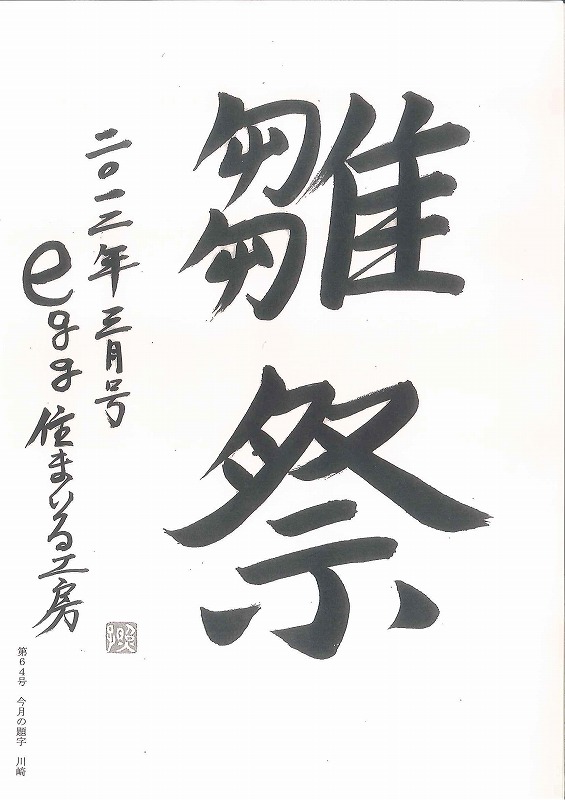 雛祭
二〇一二年三月号
egg住まいる工房
第64号　今月の題字　川崎